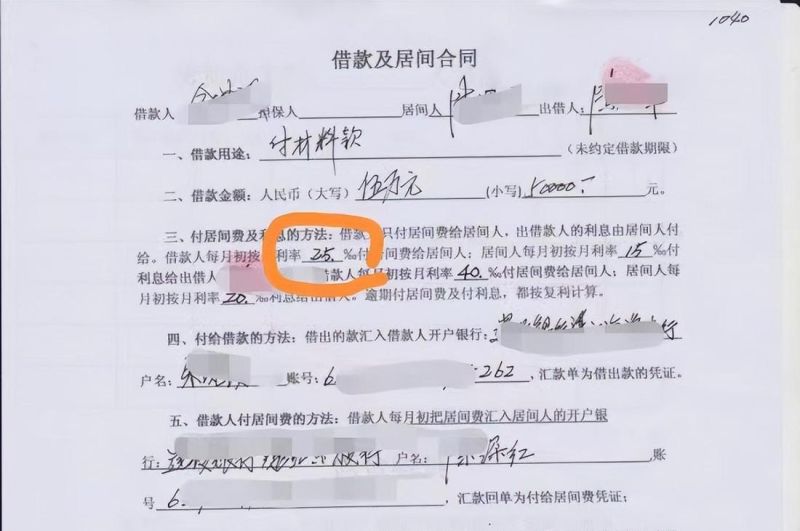 1040
借款及居间合同
借款人 担保人 居间人 出借人:
一、借款用途: 付材料款 (未约定借款期限)
二、借款金额: 人民币(大写) 伍万元 (小写) 50000.- 元。
三、付居间费及利息的方法: 借款 只付居间费给居间人, 出借款人的利息由居间人付
给。借款人每月初按 利率 25. ‰付 间费给居间人; 居间人每月初按月利率 15 ‰付
利息给出借人 借款人每月初按月利率 40. ‰付居间费给居间人; 居间人每
月初按月利率 20. ‰利息给出借人。逾期付居间费及付利息, 都按复利计算。
四、付给借款的方法: 借出的款汇入借款人开户银行: 行
户名: 账号: 6. 262 , 汇款单为借出款的凭证。
五、借款人付居间费的方法: 借款人每月初把居间费汇入居间人的开户银
行: 户名: 红 账
号 6. , 汇款回单为付给居间费凭证;